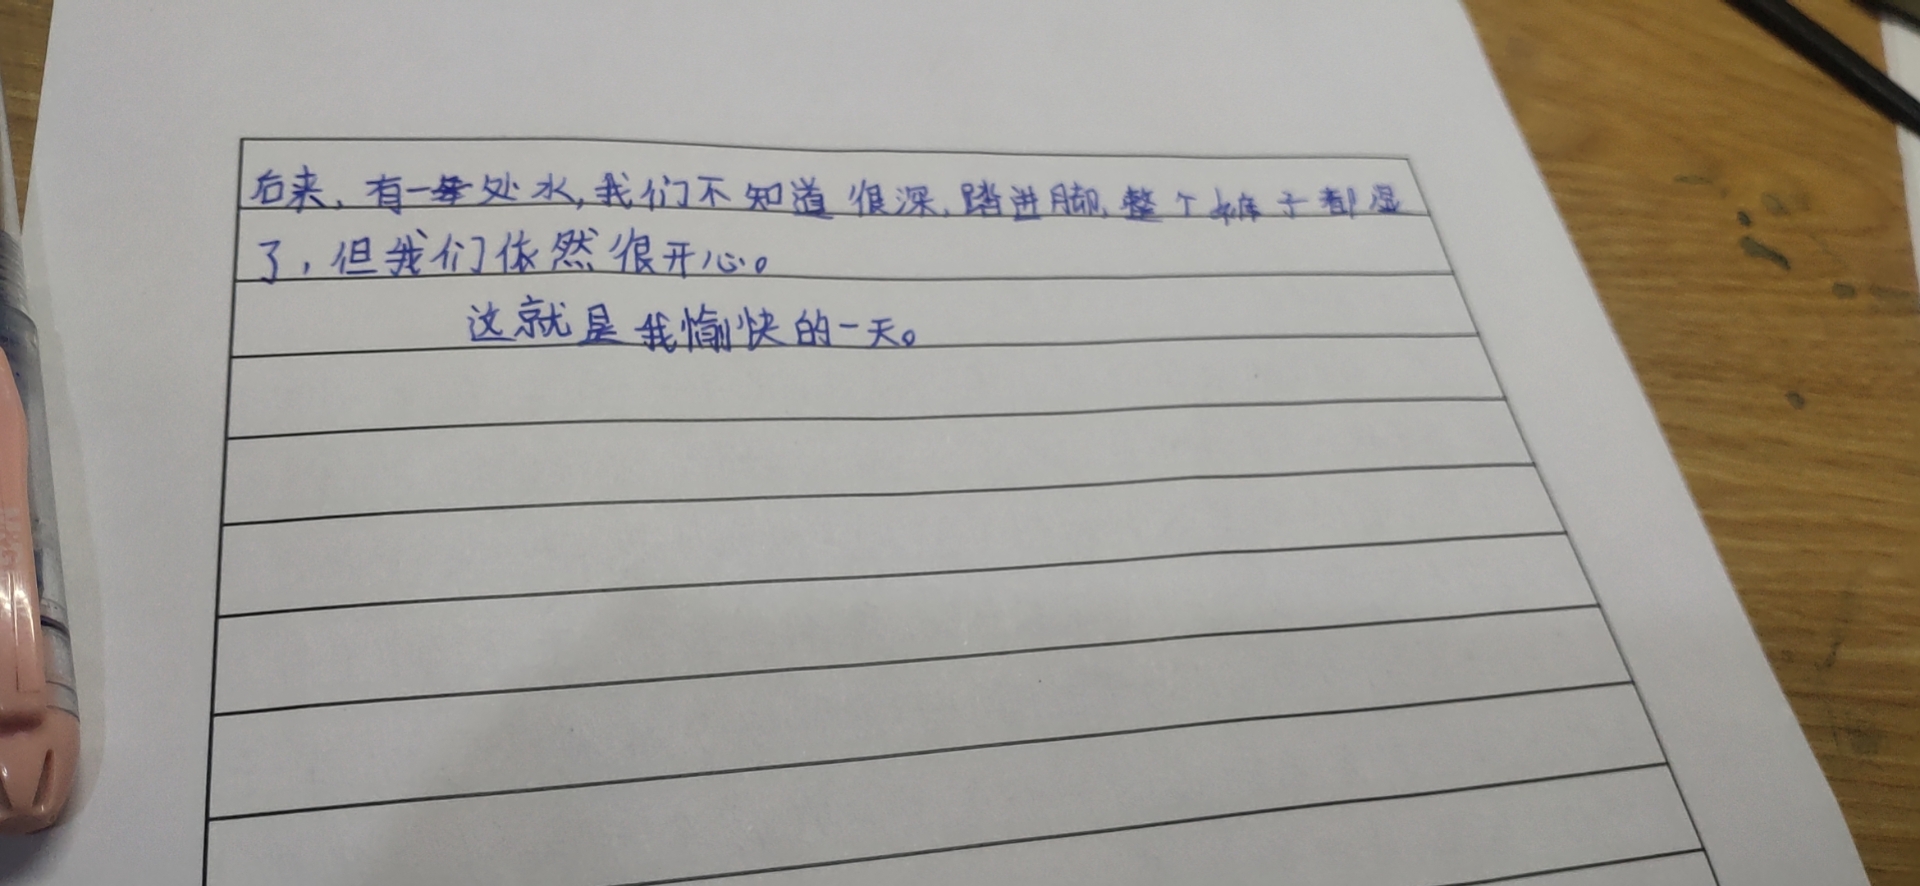 后来，有一处水，我们不知道很深，踏进脚，整个裤子都湿
了，但我们依然很开心。
这就是我愉快的一天。